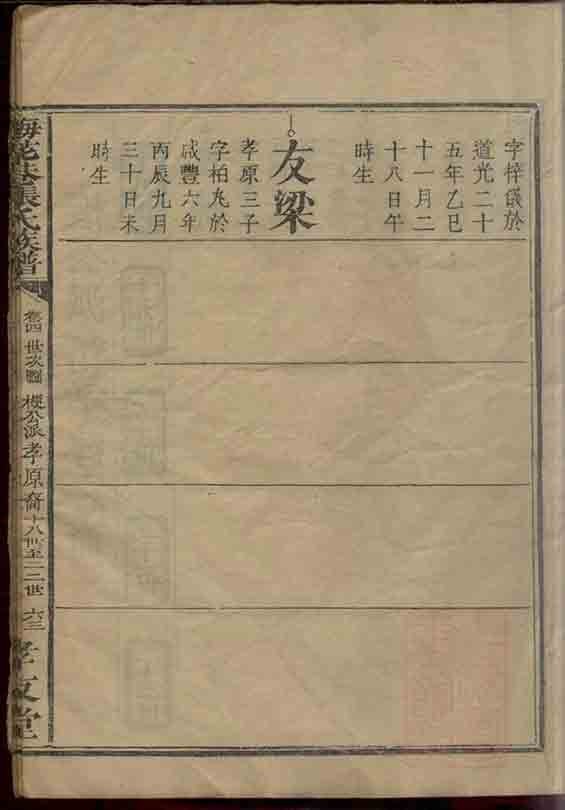 字梓儀於
道光二十
五年乙巳
十一月二
十八日午
時生
友梁
孝原三子
字柏先於
咸豐六年
丙辰九月
三十日未
時生
梅花巷張氏族譜
卷四 世次圖 樓公派孝原裔十八世至二二世 六三
孝友堂